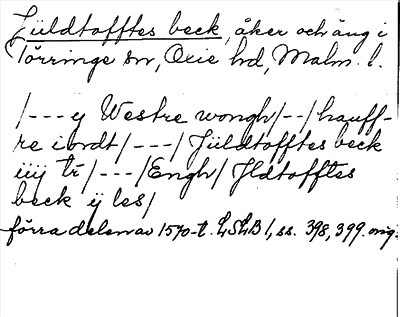 Jüldtofftes beck, åker och äng i
Törringe sn, Oxie hd, Malm. l.
/---y Westre wongh/--/hauff-
re iordt/---/Jüldtofftes beck
iiij tr/---/Engh/Jldtofftes
beck ij les/
förra delen av 1570-t. LSLB 1, ss. 398, 399. orig.